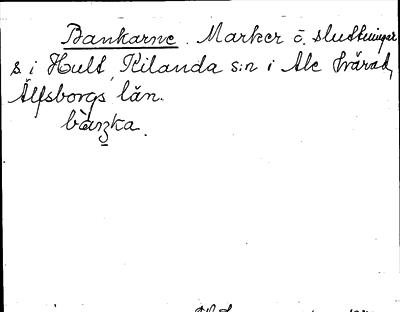 Bankarne. Marker o. sluttningar
s i Hult, Kilanda s:n i Ale härad,
Älfsborgs län.
bàŋka.